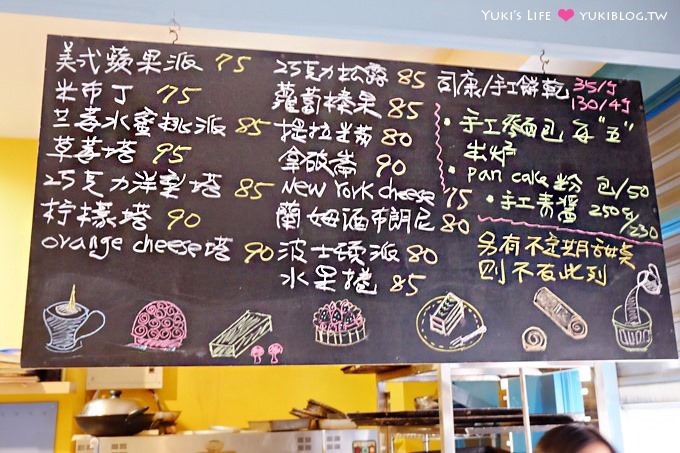 YUKI'S LIFE ♥ YUKIBLOG.TW
美式蘋果派 75
米布丁 75
兰莓水蜜桃派 85
草莓塔 95
巧克力洋梨塔 85
柠檬塔 90
orange cheese塔 90
巧克力松露 85
蘿蔔榛果 85
提拉米蘇 80
拿破崙 90
New York cheese 75
蘭姆酒布朗尼 80
波士頓派 80
水果捲 85
司康/手工餅乾 35/1
130/4
手工麵包 每"五"
出炉
pan cake粉 包/50
手工青醬 250g/230
另有不定期甜點
則不在此列